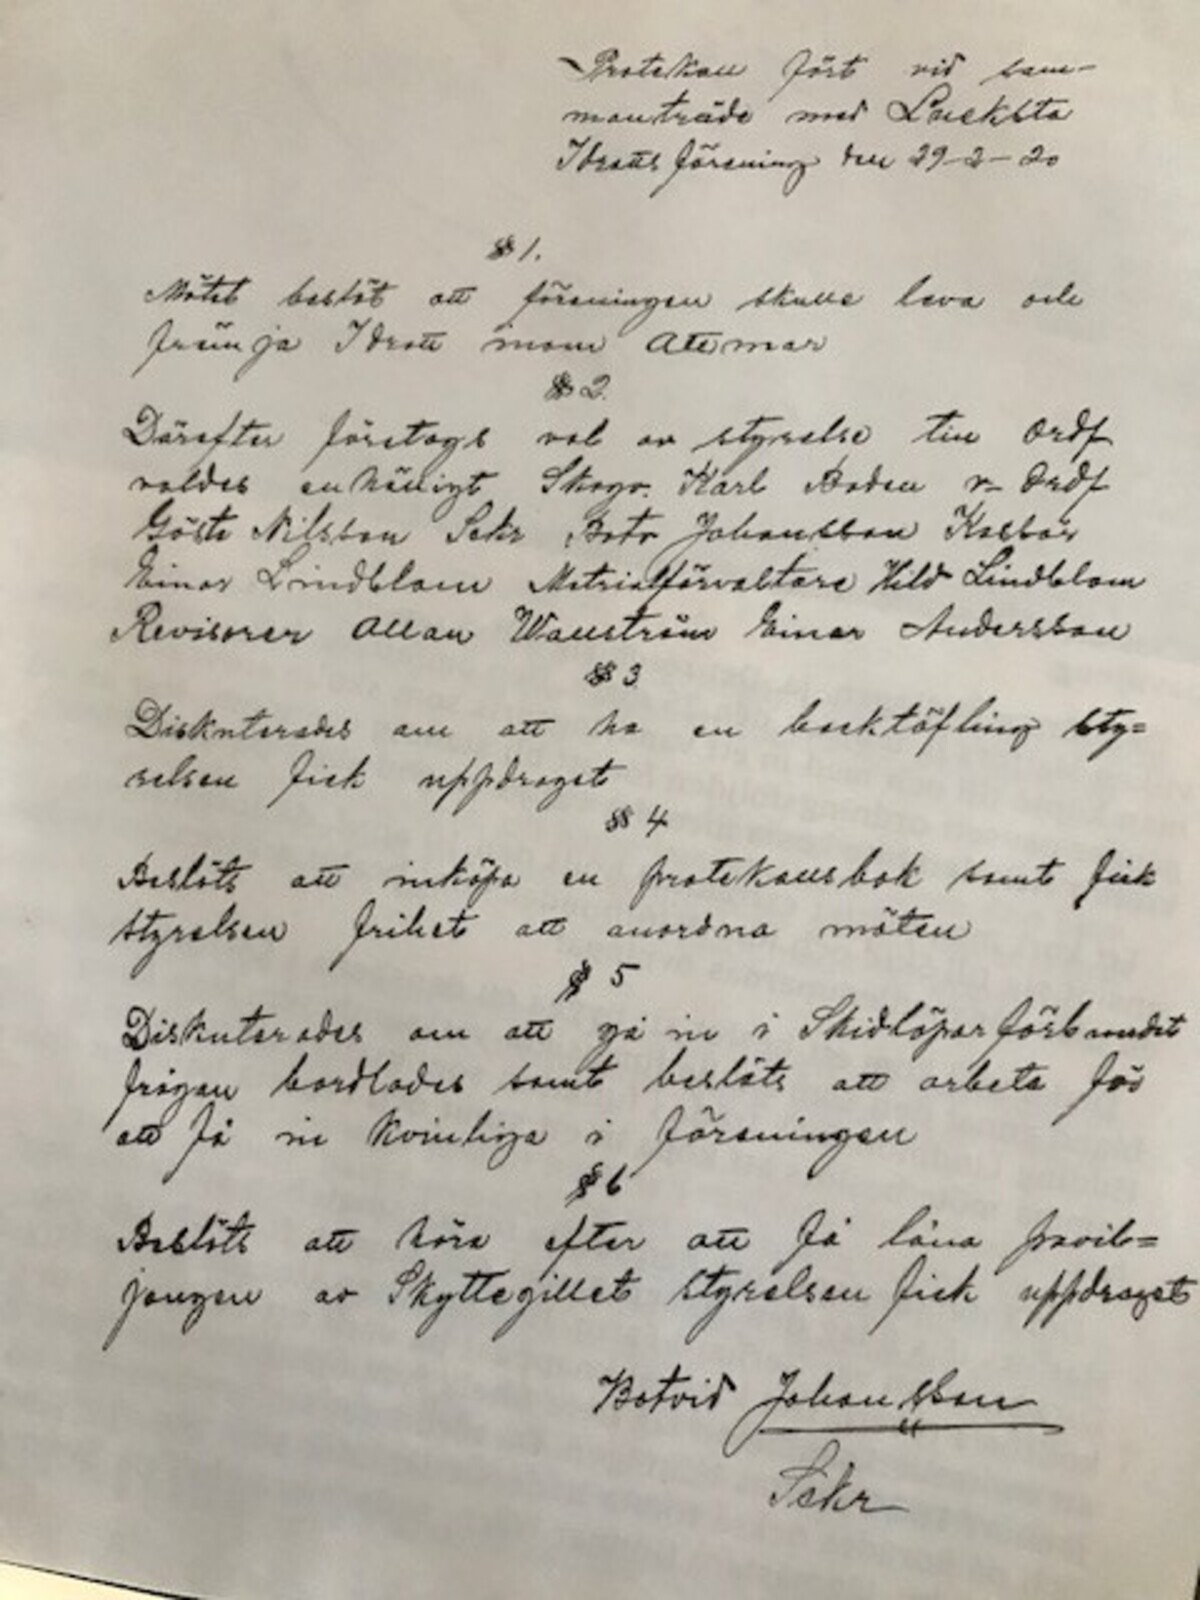 Protokoll fört vid sam-
manträde med Lucksta
Idrotts förening den 29-2-20
§ 1.
Mötet beslöt att föreningen skulle leva och
främja Idrott inom Attmar
§ 2.
Därefter företogs val av styrelse till Ordf
valdes enhälligt Skogv. Karl Boden v- Ordf
Gösta Nilsson Sekr Botv Johansson Kassör
Einar Lindblom Matrialförvaltare Hild Lindblom
Revisorer Allan Wallström Einar Andersson
§ 3
Diskuterades om att ha en backtäfling sty=
relsen fick uppdraget
§ 4
Beslöts att inköpa en protokollsbok samt fick
styrelsen frihet att anordna möten
§ 5
Diskuterades om att gå in i Skidlöparförbundet
frågan bordlades samt beslöts att arbeta för
att få in kvinliga i föreningen
§ 6
Beslöts att höra efter att få låna pavil=
jongen av Skyttegillet styrelsen fick uppdraget
Botvid Johansson
Sekr